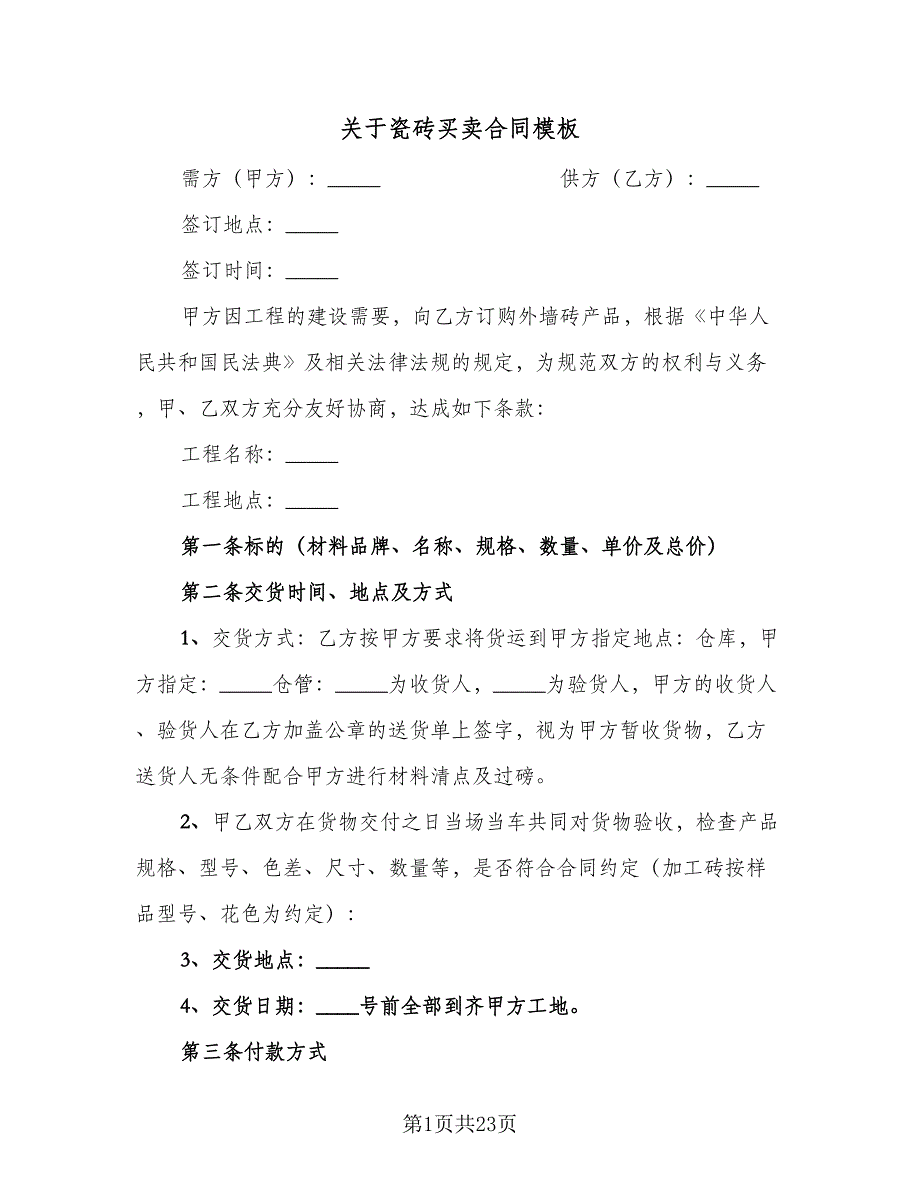 关于瓷砖买卖合同模板
需方（甲方）：_____ 供方（乙方）：_____
签订地点：_____
签订时间：_____
甲方因工程的建设需要，向乙方订购外墙砖产品，根据《中华人
民共和国民法典》及相关法律法规的规定，为规范双方的权利与义务
，甲、乙双方充分友好协商，达成如下条款：
工程名称：_____
工程地点：_____
第一条标的（材料品牌、名称、规格、数量、单价及总价）
第二条交货时间、地点及方式
1、交货方式：乙方按甲方要求将货运到甲方指定地点：仓库，甲
方指定：_____仓管：_____为收货人，_____为验货人，甲方的收货人
、验货人在乙方加盖公章的送货单上签字，视为甲方暂收货物，乙方
送货人无条件配合甲方进行材料清点及过磅。
2、甲乙双方在货物交付之日当场当车共同对货物验收，检查产品
规格、型号、色差、尺寸、数量等，是否符合合同约定（加工砖按样
品型号、花色为约定）：
3、交货地点：_____
4、交货日期：____号前全部到齐甲方工地。
第三条付款方式
第1页共23页